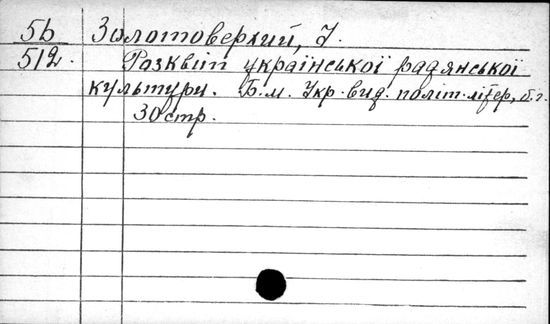 5b Золотоверхий, І.
512. Розквіт української радянської
культури. Б.м. Укр. вид. політ. літер, б.г.
30 стр.